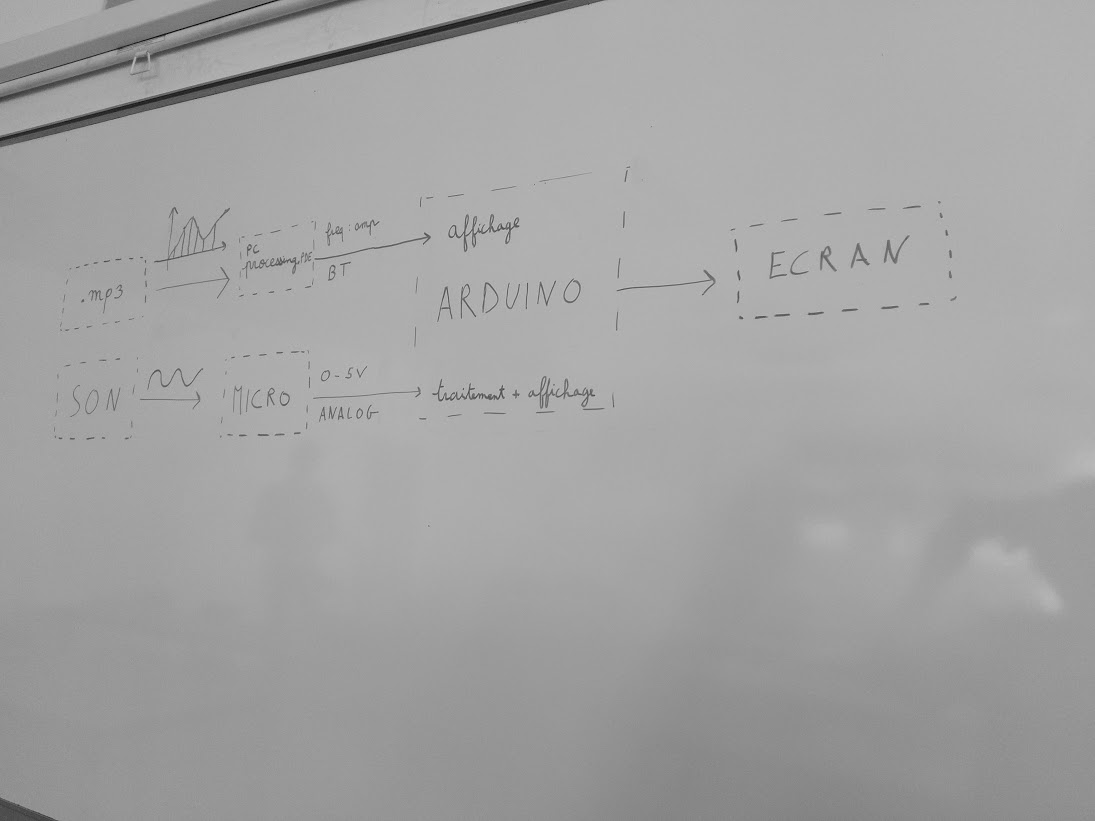 .mp3
PC
processing.PDE
freq : amp
BT
affichage
ARDUINO
ECRAN
SON
MICRO
0-5V
ANALOG
traitement + affichage